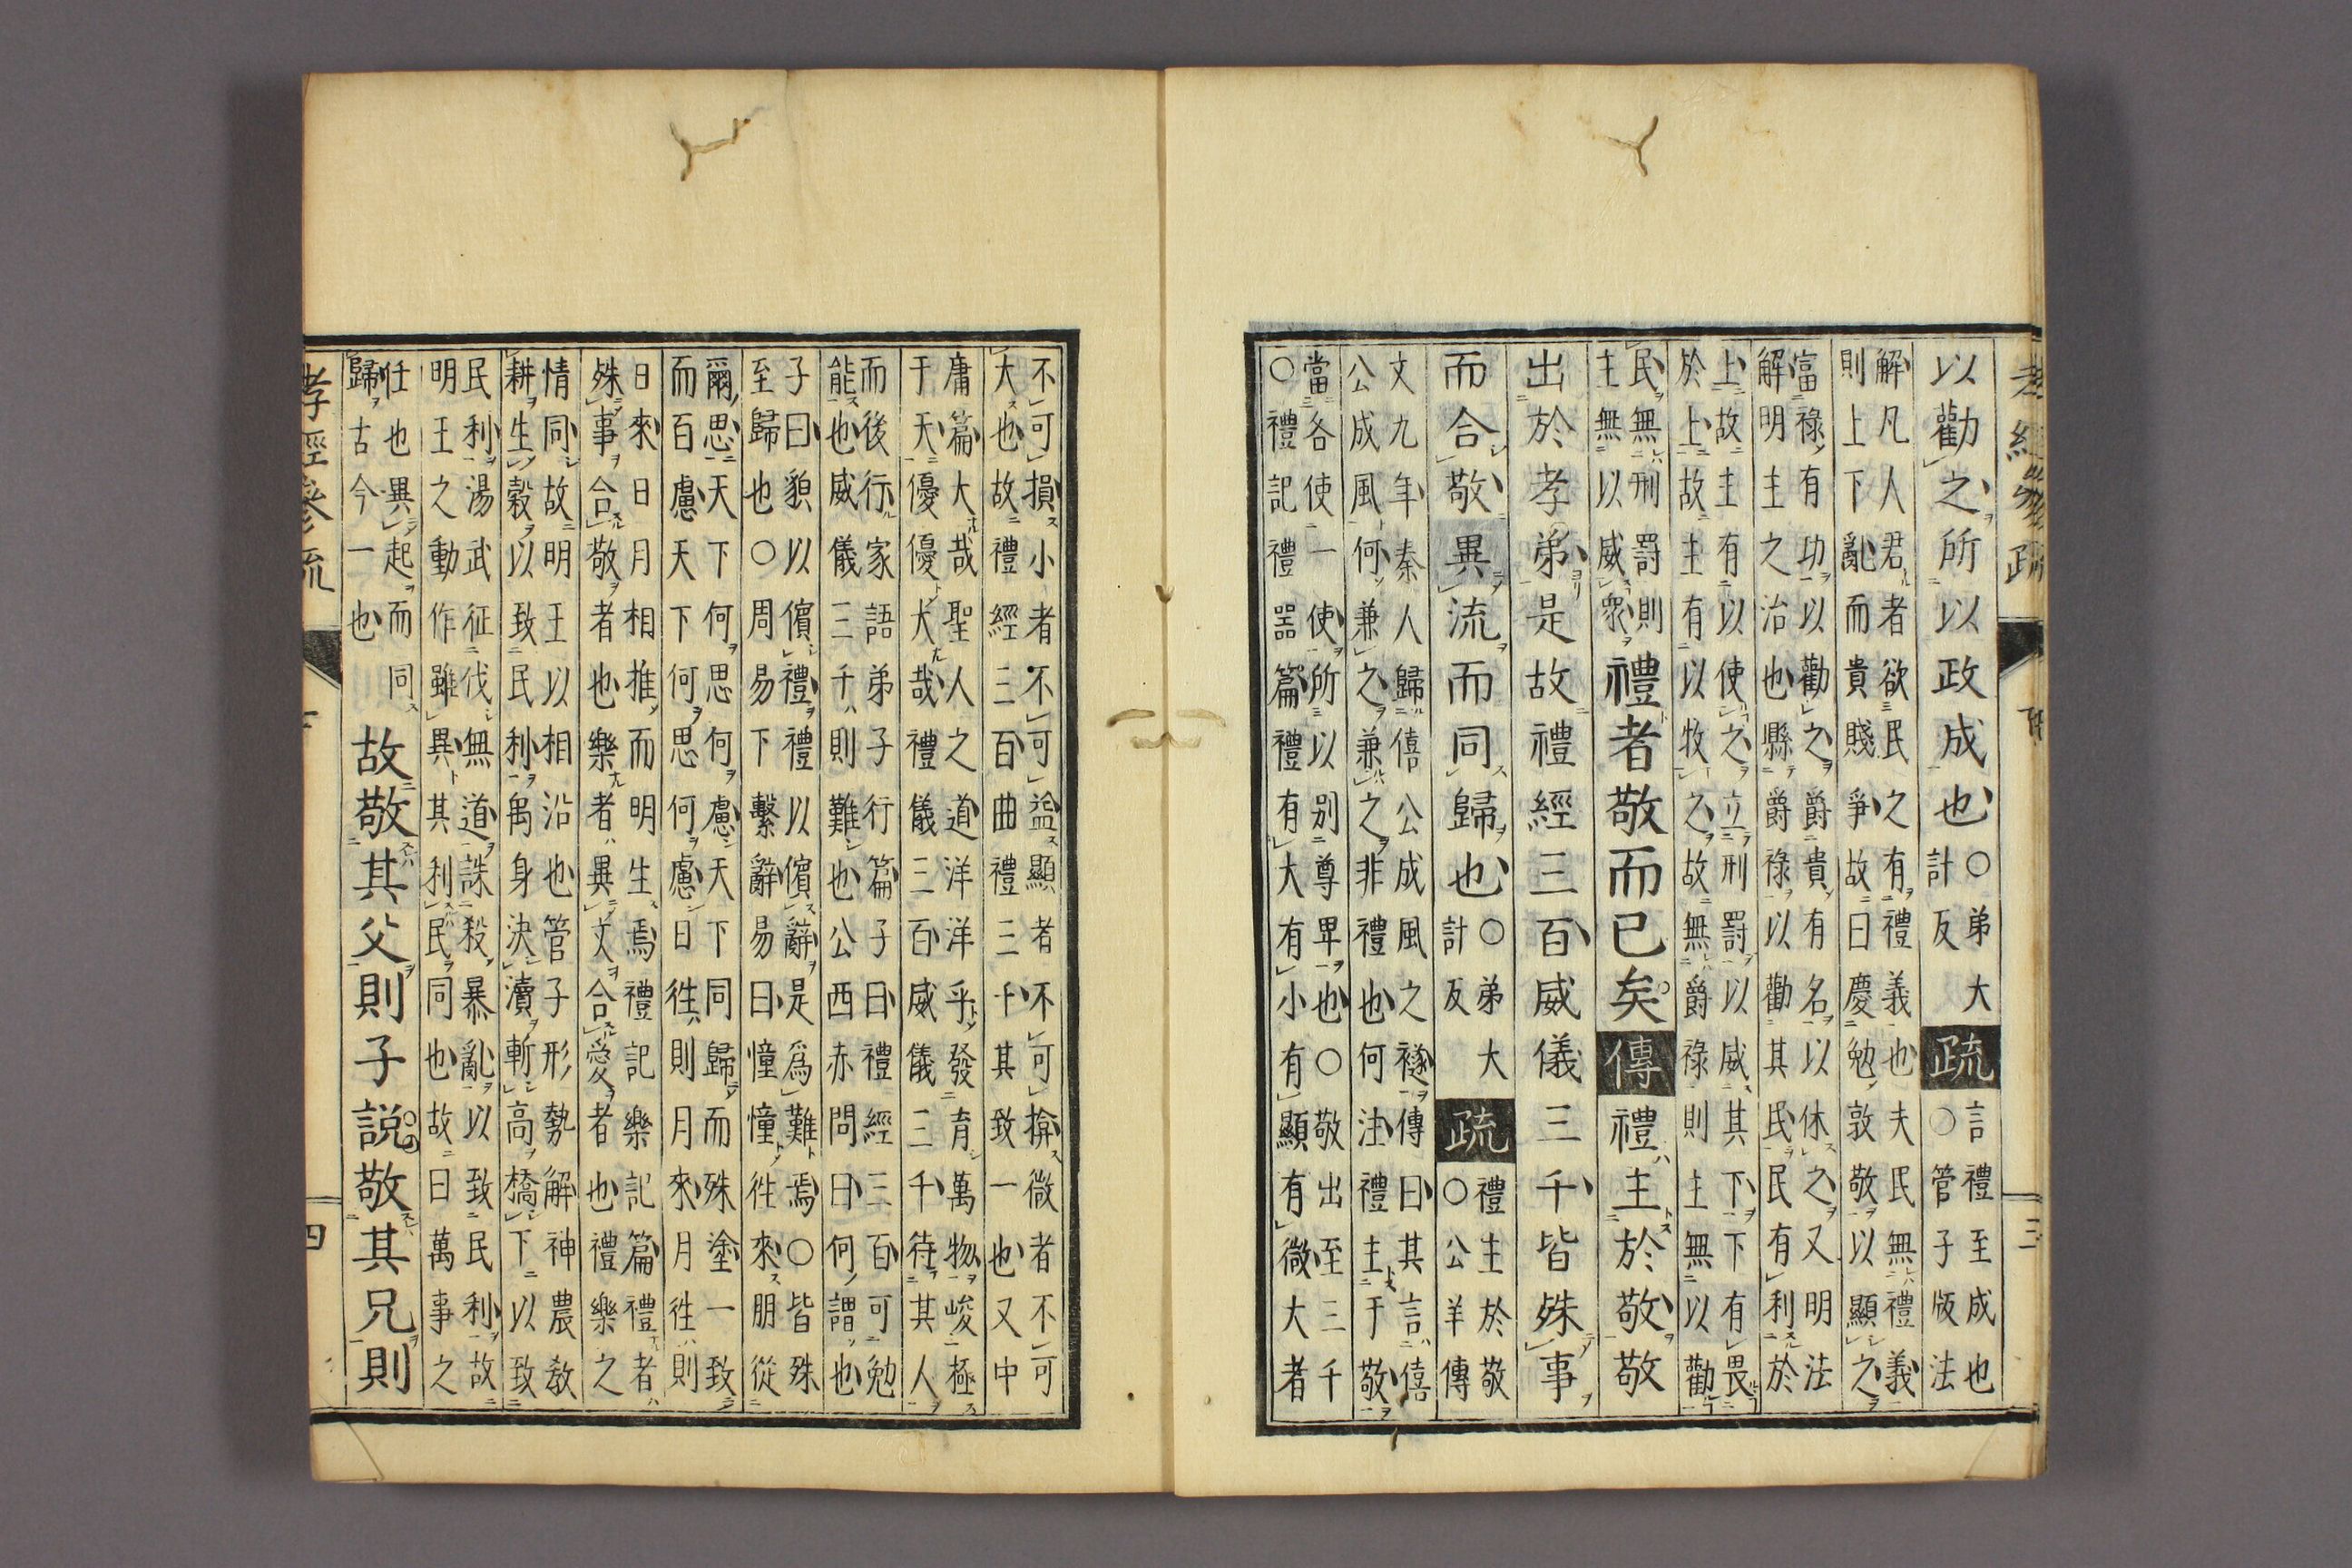 孝經參疏 下 三
以勸之所以政成也
○弟大
計反
疏
言禮至成也
○管子版法
解凡人君者欲民之有禮義也夫民無禮義
則上下亂而貴賤爭故曰慶勉敦敬以顯之
富祿有功以勸之爵貴有名以休之又明法
解明主之治也縣爵祿以勸其民民有利於
上故主有以使之立刑罰以威其下下有畏
於上故主有以牧之故無爵祿則主無以勸
民無刑罰則
主無以威衆
禮者敬而已矣傳禮主於敬敬
出於孝弟是故禮經三百威儀三千皆殊事
而合敬異流而同歸也
○弟大
計反
疏
禮主於敬
○公羊傳
文九年秦人歸僖公成風之襚傳曰其言僖
公成風何兼之兼之非禮也何注禮主于敬
當各使一使所以別尊卑也○敬出至三千
○禮記禮器篇禮有大有小有顯有微大者
不可損小者不可益顯者不可揜微者不可
大也故禮經三百曲禮三千其致一也又中
庸篇大哉聖人之道洋洋乎發育萬物峻極
于天優優大哉禮儀三百威儀三千待其人
而後行家語弟子行篇子曰禮經三百可勉
能也威儀三千則難也公西赤問曰何謂也
子曰貌以儐禮禮以儐辭是爲難焉○皆殊
至歸也○周易下繫辭易曰憧憧往來朋從
爾思天下何思何慮天下同歸而殊塗一致
而百慮天下何思何慮日往則月來月往則
日來日月相推而明生焉禮記樂記篇禮者
殊事合敬者也樂者異文合愛者也禮樂之
情同故明王以相沿也管子形勢解神農教
耕生穀以致民利禹身決瀆斬高橋下以致
民利湯武征伐無道誅殺暴亂以致民利故
明王之動作雖異其利民同也故曰萬事之
任也異起而同
歸古今一也
故敬其父則子説敬其兄則
孝經參疏 下 四